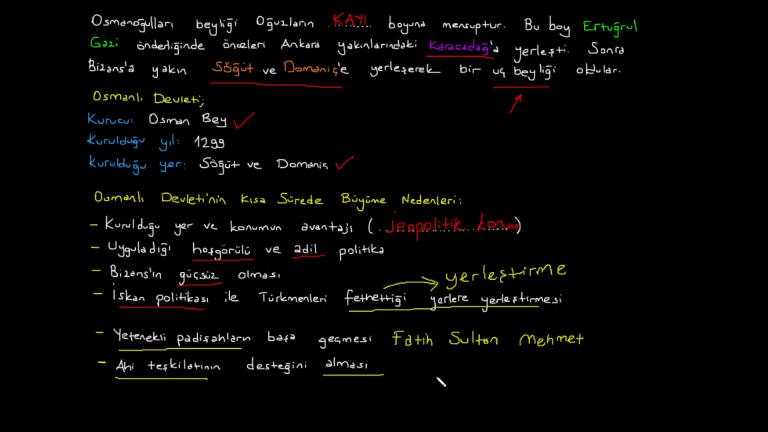 Osmanoğulları beyliği Oğuzların KAYI boyuna mensuptur. Bu boy Ertuğrul
Gazi önderliğinde önceleri Ankara yakınlarındaki Karacadağ'a yerleşti. Sonra
Bizans'a yakın Söğüt ve Domaniç'e yerleşerek bir uç beyliği oldular.
Osmanlı Devleti;
Kurucu: Osman Bey
Kurulduğu yıl: 1299
Kurulduğu yer: Söğüt ve Domaniç
Osmanlı Devleti'nin Kısa Sürede Büyüme Nedenleri:
- Kurulduğu yer ve konumun avantajı (jeopolitik konum)
- Uyguladığı hoşgörülü ve adil politika
- Bizans'ın güçsüz olması
yerleştirme
- İskan politikası ile Türkmenleri fethettiği yerlere yerleştirmesi
- Yetenekli padişahların başa geçmesi Fatih Sultan Mehmet
- Ahi teşkilatının desteğini alması